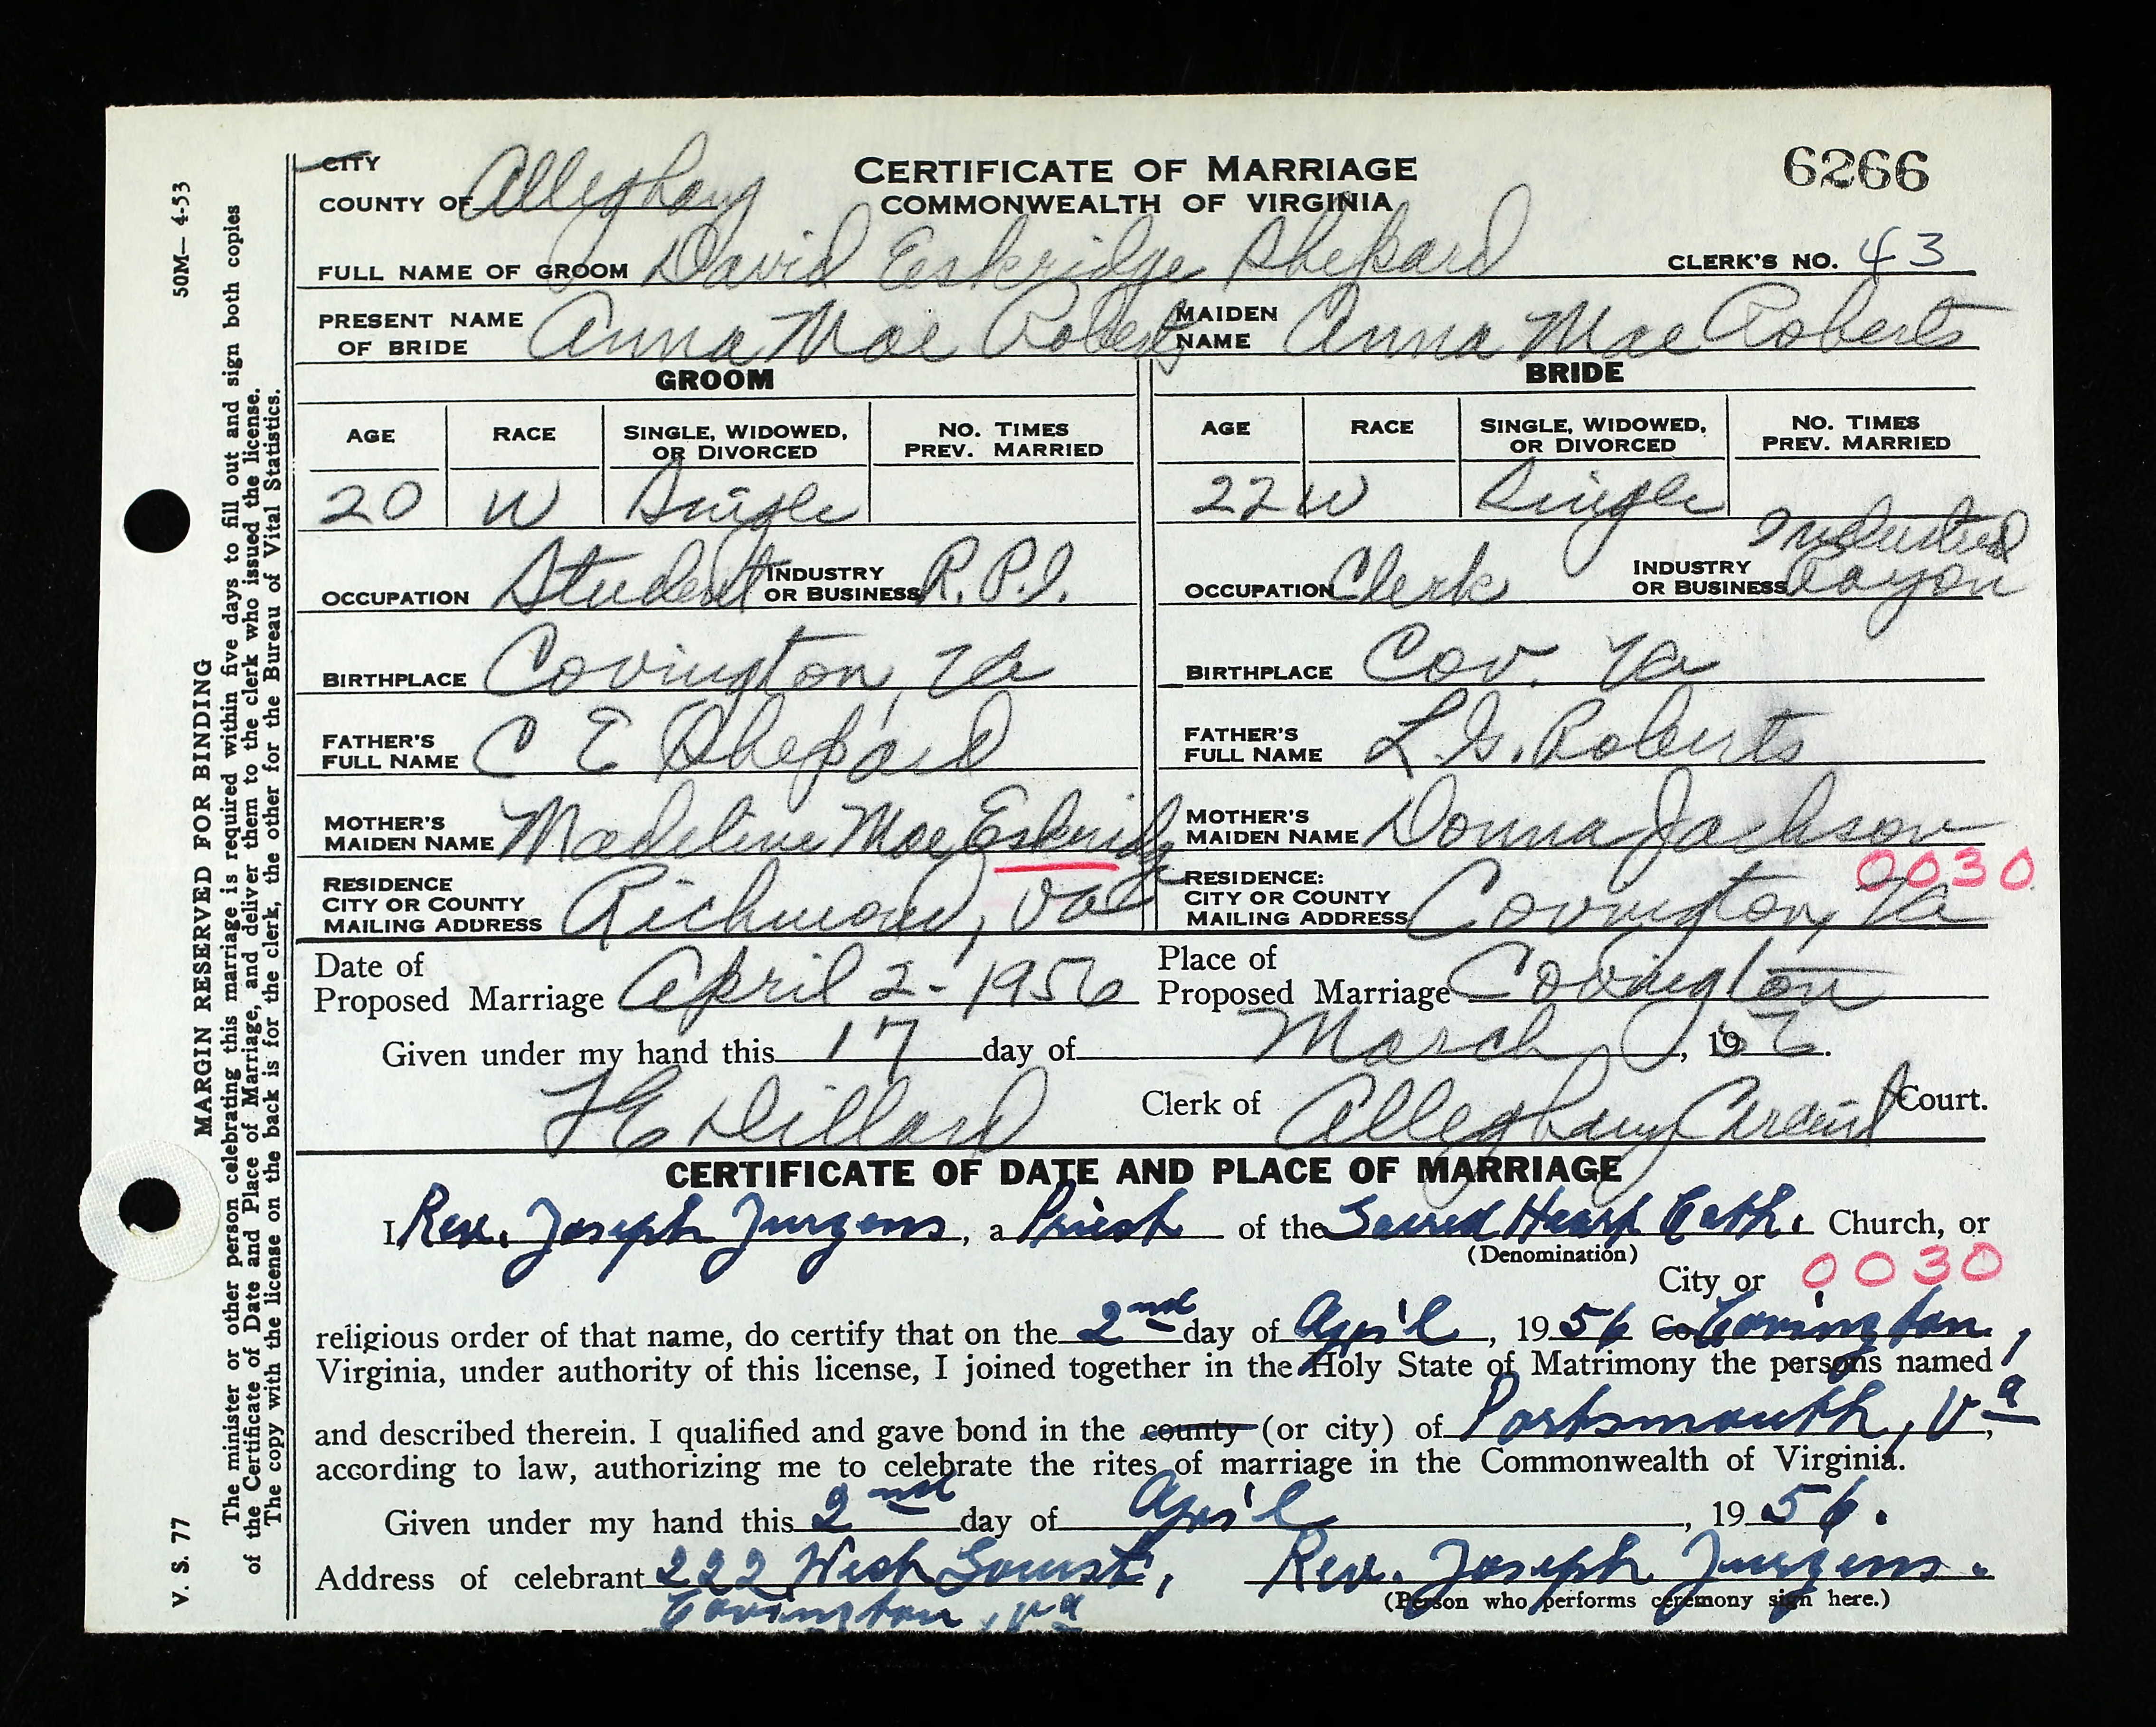 CITY
COUNTY OF Alleghany
CERTIFICATE OF MARRIAGE
COMMONWEALTH OF VIRGINIA
6266
FULL NAME OF GROOM David Eskridge Shepard CLERK'S NO. 43
PRESENT NAME OF BRIDE Anna Mae Roberts MAIDEN NAME Anna Mae Roberts
GROOM BRIDE
AGE RACE SINGLE, WIDOWED, OR DIVORCED NO. TIMES PREV. MARRIED AGE RACE SINGLE, WIDOWED, OR DIVORCED NO. TIMES PREV. MARRIED
20 W Single 22 W Single
OCCUPATION Student INDUSTRY OR BUSINESS R.P.I. OCCUPATION Clerk INDUSTRY OR BUSINESS Industrial Rayon
BIRTHPLACE Covington, Va BIRTHPLACE Cov. Va
FATHER'S FULL NAME C E Shepard FATHER'S FULL NAME L.G. Roberts
MOTHER'S MAIDEN NAME Madeline Mae Eskridge MOTHER'S MAIDEN NAME Donna Jackson
0030
RESIDENCE CITY OR COUNTY MAILING ADDRESS Richmond, Va RESIDENCE: CITY OR COUNTY MAILING ADDRESS Covington, Va
Date of Proposed Marriage April 2-1956 Place of Proposed Marriage Covington
Given under my hand this 17 day of March, 1956.
Dillard Clerk of Alleghany Circuit Court.
CERTIFICATE OF DATE AND PLACE OF MARRIAGE
I Rev. Joseph Jurgens, a Priest of the Sacred Heart Cath. Church, or
(Denomination)
City or 0030
religious order of that name, do certify that on the 2nd day of April, 1956 Co Covington,
Virginia, under authority of this license, I joined together in the Holy State of Matrimony the persons named
and described therein. I qualified and gave bond in the county (or city) of Portsmouth, Va,
according to law, authorizing me to celebrate the rites of marriage in the Commonwealth of Virginia.
Given under my hand this 2nd day of April, 1956.
Address of celebrant 222 West Rev. Joseph Jurgens.
Covington, Va (Person who performs ceremony sign here.)
50M—4-53
MARGIN RESERVED FOR BINDING
V. S. 77
The minister or other person celebrating this marriage is required within five days to fill out and sign both copies
of the Certificate of Date and Place of Marriage, and deliver them to the clerk who issued the license.
The copy with the license on the back is for the clerk, the other for the Bureau of Vital Statistics.